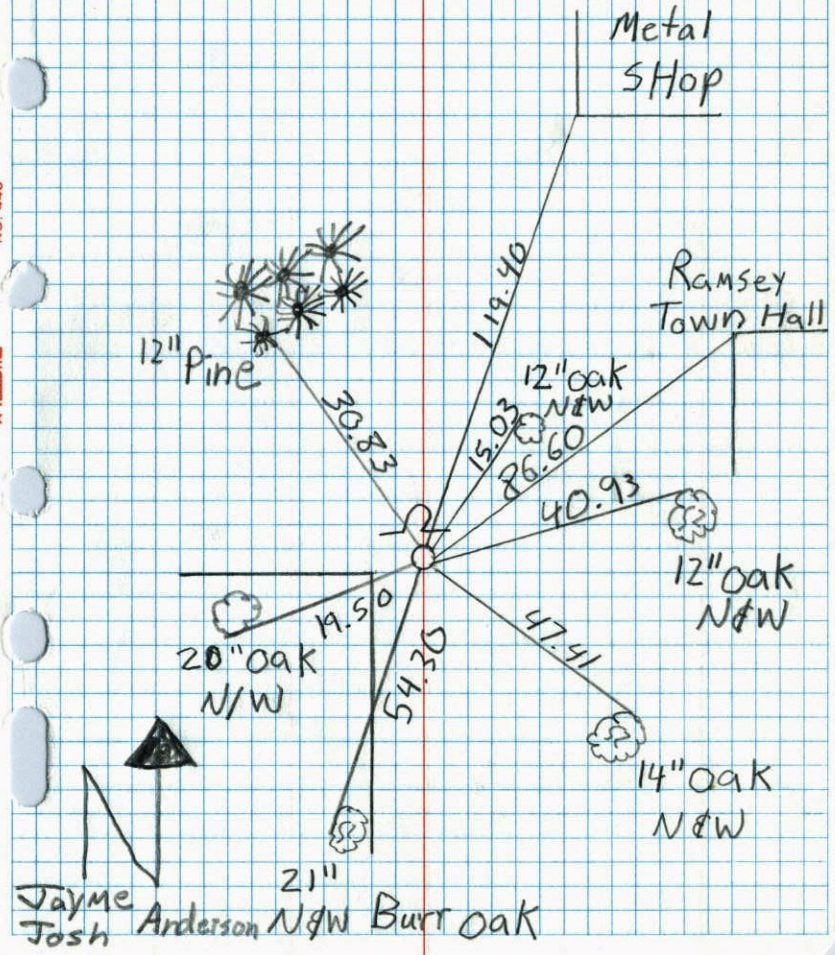 Metal
SHop
119.40
Ramsey
Town Hall
12" Pine
30.83
12" oak
N&W
15.03
86.60
40.93
12" oak
N&W
19.50
20" oak
N/W
54.30
47.41
14" oak
N&W
N
21"
N&W Burr oak
Jayme
Josh Anderson